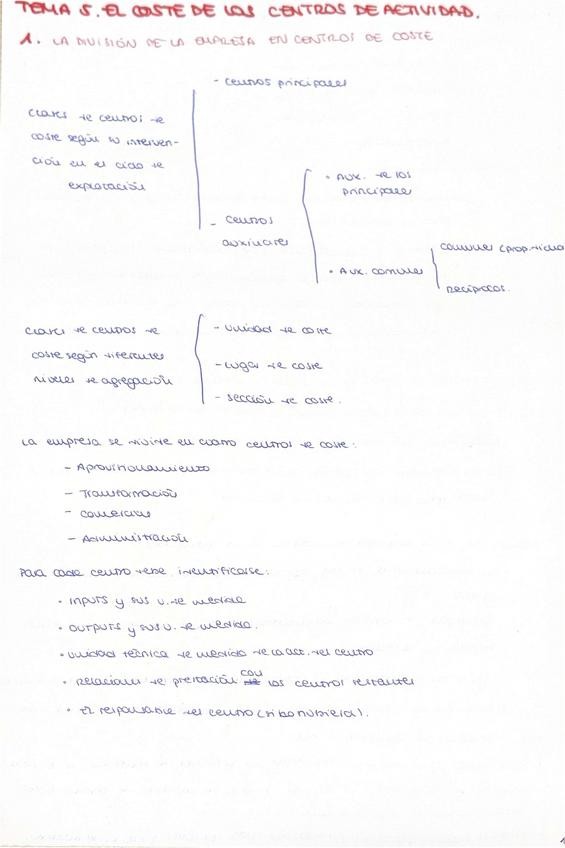 TEMA 5. EL COSTE DE LOS CENTROS DE ACTIVIDAD.
1. LA DIVISIÓN DE LA EMPRESA EN CENTROS DE COSTE
- Centros principales
Clases de centros de
coste según su interven-
ción en el ciclo de
explotación
• Aux. de los
principales
- Centros
auxiliares
• Aux. comunes
comunes (prop. dicha
Recíprocos.
Clases de centros de
coste según diferentes
niveles de agregación
- Unidad de coste
- Lugar de coste
- Sección de coste.
La empresa se divide en cuatro centros de coste:
- Aprovisionamiento
- Transformación
- Comercial
- Administración
Para cada centro debe identificarse:
• Inputs y sus u. de medida
• Outputs y sus u. de medida.
• Unidad técnica de medida de la act. del centro
• Relaciones de prestación con los centros restantes
• El responsable del centro (si lo hubiera).
1